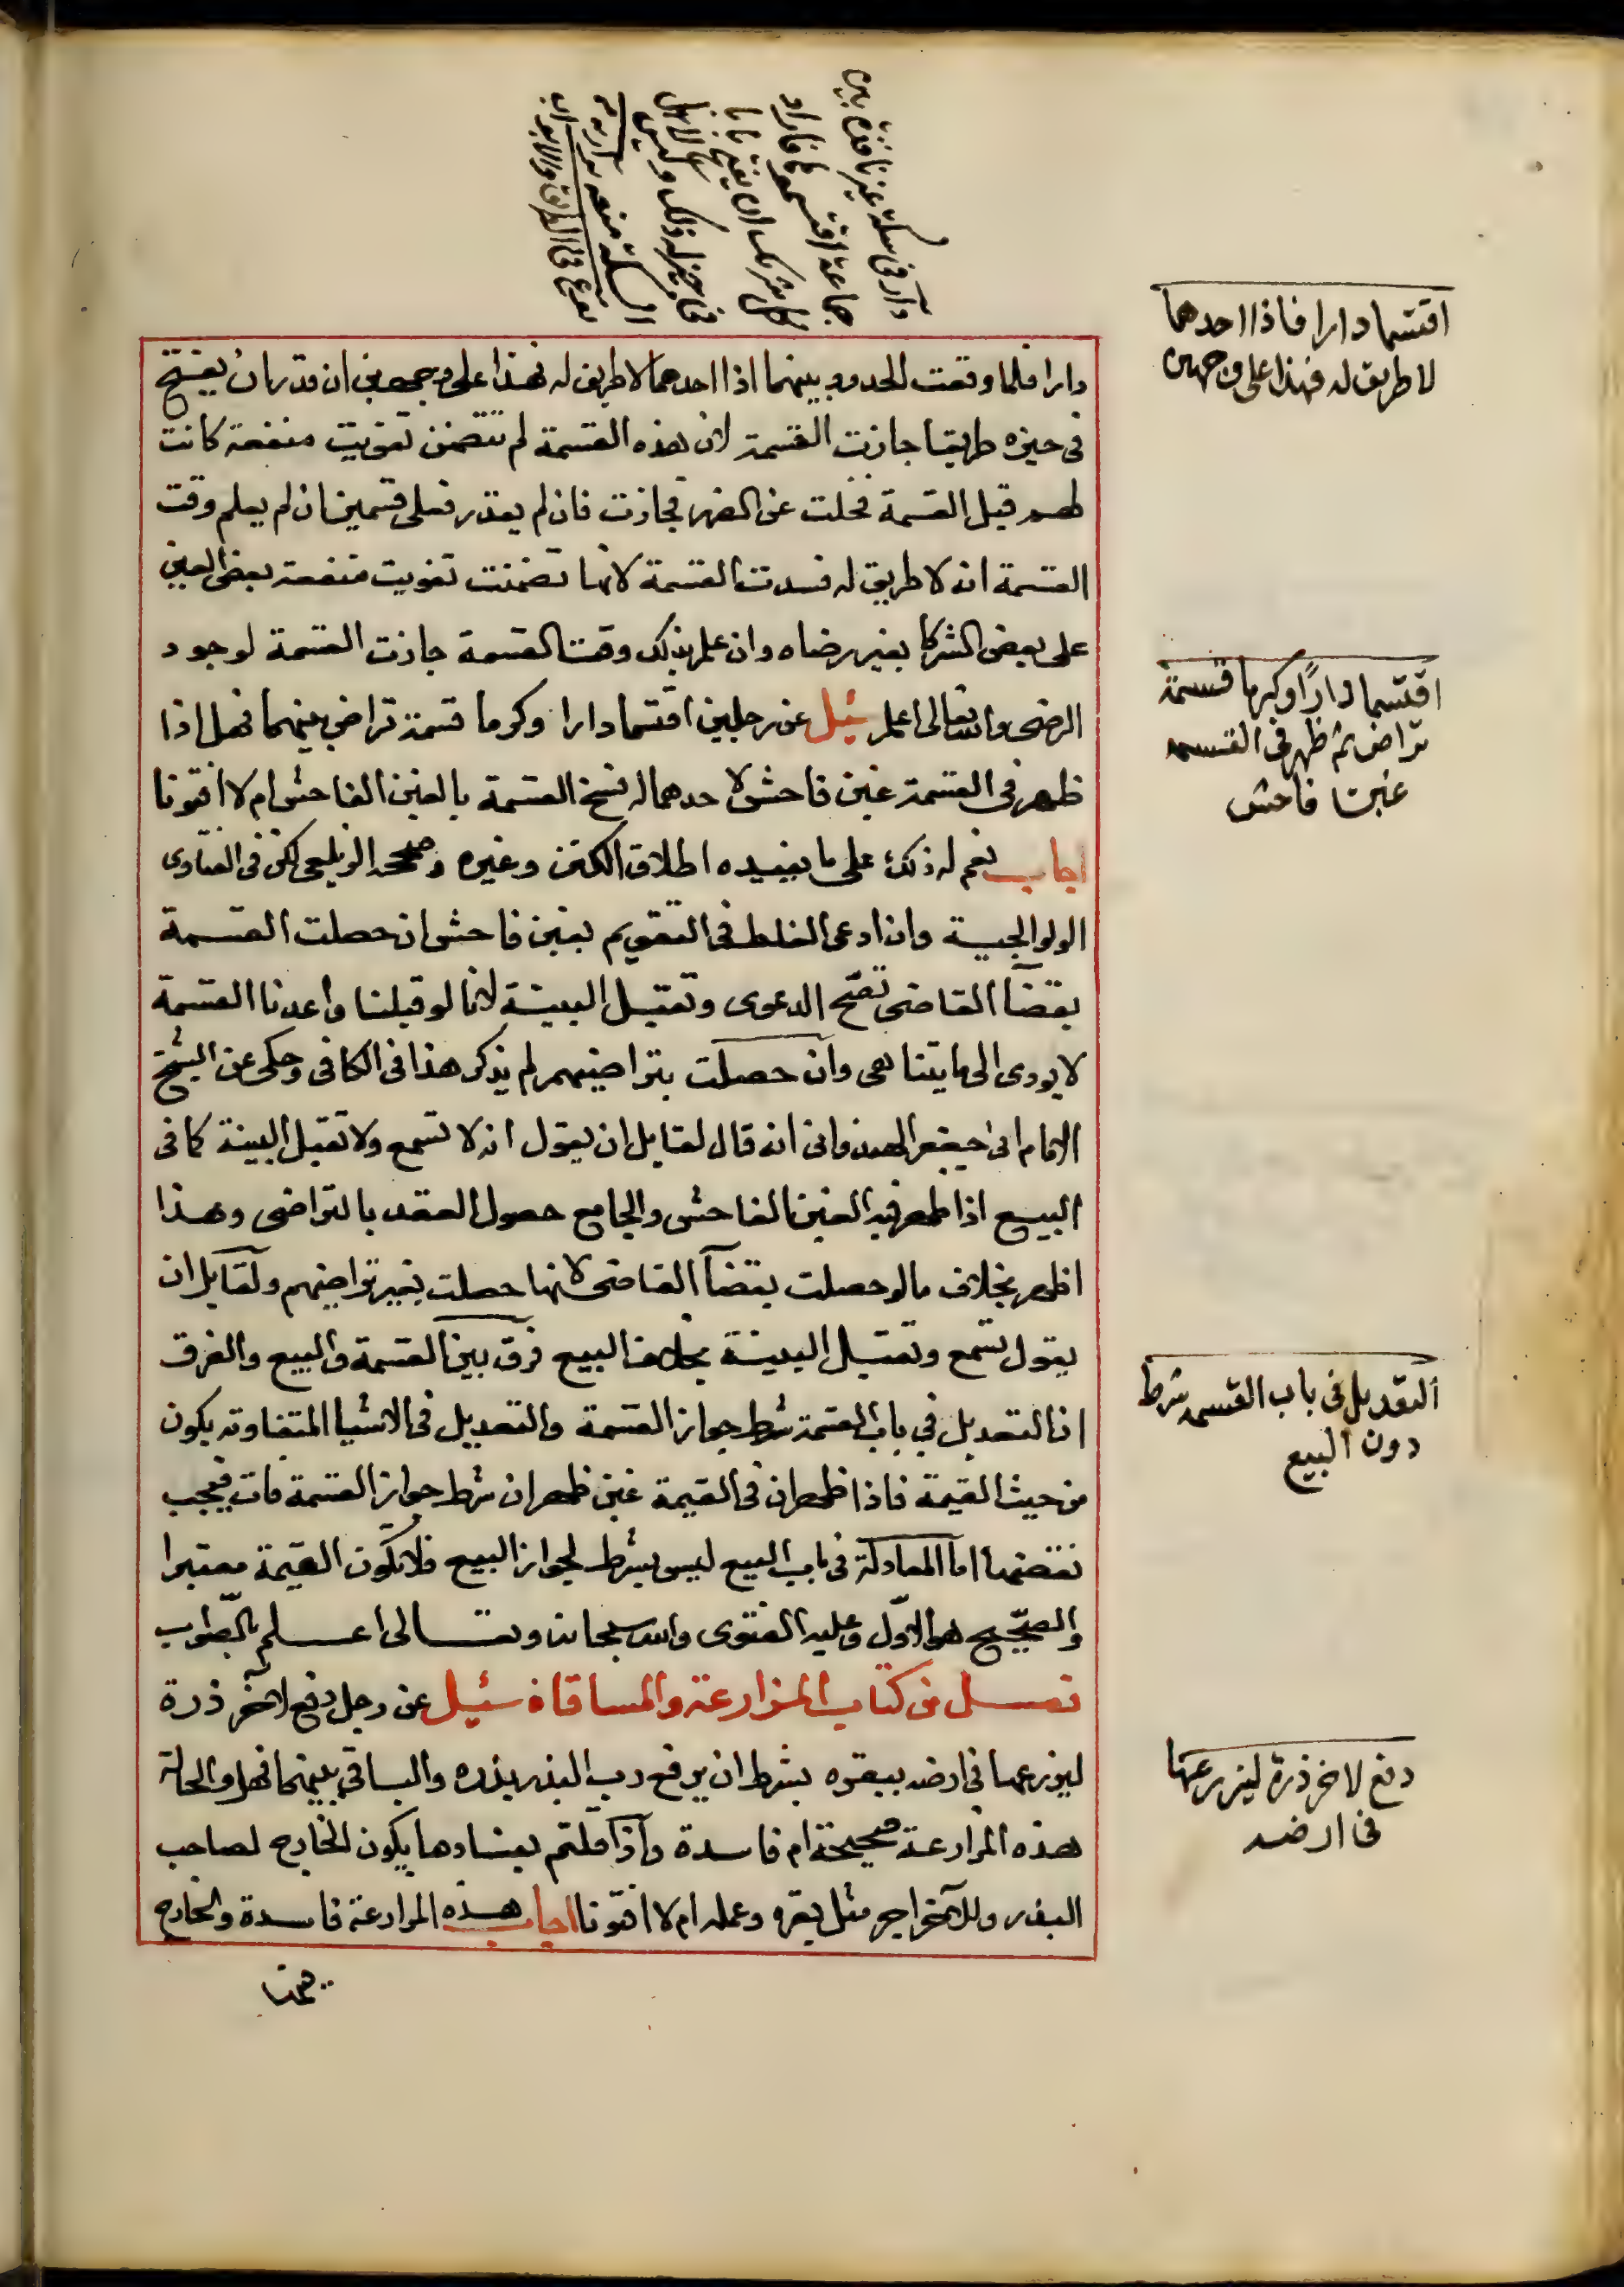 دار في سكة غير نافذة بين
جماعة اقتسموها فاراد
كل شريك ان يفتح بابا
في حيزه له ذلك وليس
اقتسما دارا فاذا احدهما
لا طريق له فهذا على وجهين
دارا فلما وقعت الحدود بينهما اذا احدهما لا طريق له فهذا على وجهين ان قدر ان يفتح
في حيزه طريقا جازت القسمة لان هذه القسمة لم تتضمن تفويت منفعة كانت
لهم قبل القسمة فخلت عن الضرر فجازت فان لم يقدر فعلى قسمين ان لم يعلم وقت
القسمة انه لا طريق له فسدت القسمة لانها تضمنت تفويت منفعة بعض العين
على بعض الشركا بغير رضاه وان علم بذلك وقت القسمة جازت القسمة لوجود
الرضى والله تعالى اعلم سئل عن رجلين اقتسما دارا وكرما قسمة تراض بينهما فهل اذا
ظهر في القسمة غبن فاحش لاحدهما له فسخ القسمة بالغبن الفاحش ام لا افتونا
اجاب نعم له ذلك على ما يفيده اطلاق الكنز وغيره وصححه الزيلعي لكن في الفتاوى
الولوالجية وان ادعى الغلط في التقويم بغبن فاحش ان حصلت القسمة
بقضآ القاضي تصح الدعوى وتقبل البينة لانا لو قبلنا واعدنا القسمة
لا يودي الى ما يتناهى وان حصلت بتراضيهم لم يذكر هذا في الكافي وحكى عن الشيخ
الامام ابي جعفر الهندواني انه قال لقايل ان يقول انه لا تسمع ولا تقبل البينة كما في
البيع اذا ظهر فيه الغبن الفاحش والجامع حصول العقد بالتراضي وهذا
اظهر بخلاف ما لو حصلت بقضآ القاضي لانها حصلت بغير تراضيهم ولقايل ان
يقول تسمع وتقبل البينة بخلاف البيع فرق بين القسمة والبيع والفرق
ان التعديل في باب القسمة شرط جواز القسمة والتعديل في الاشيا المتفاوته يكون
من حيث القيمة فاذا ظهر ان في القيمة غبن ظهر ان شرط جواز القسمة فات فيجب
نقضها اما المعادلة في باب البيع ليس بشرط لجواز البيع فلا تكون القيمة معتبرا
والصحيح هو الاول وعليه الفتوى والله سبحانه وتعالى اعلم بالصواب
فصل من كتاب المزارعة والمساقاة سئل عن رجل دفع لاخر ذرة
ليزرعها في ارضه ببقره بشرط ان يرفع رب البذر بذره والباقي بينهما فهل والحالة
هذه المزارعة صحيحة ام فاسدة واذا قلتم بفسادها يكون الخارج لصاحب
البذر وللآخر اجر مثل بقره وعمله ام لا افتونا اجاب هذه المزارعة فاسدة والخارج
اقتسما دارًا وكرما قسمة
تراض ثم ظهر في القسمة
غبن فاحش
التعديل في باب القسمة شرط
دون البيع
دفع لاخر ذرة ليزرعها
في ارضه